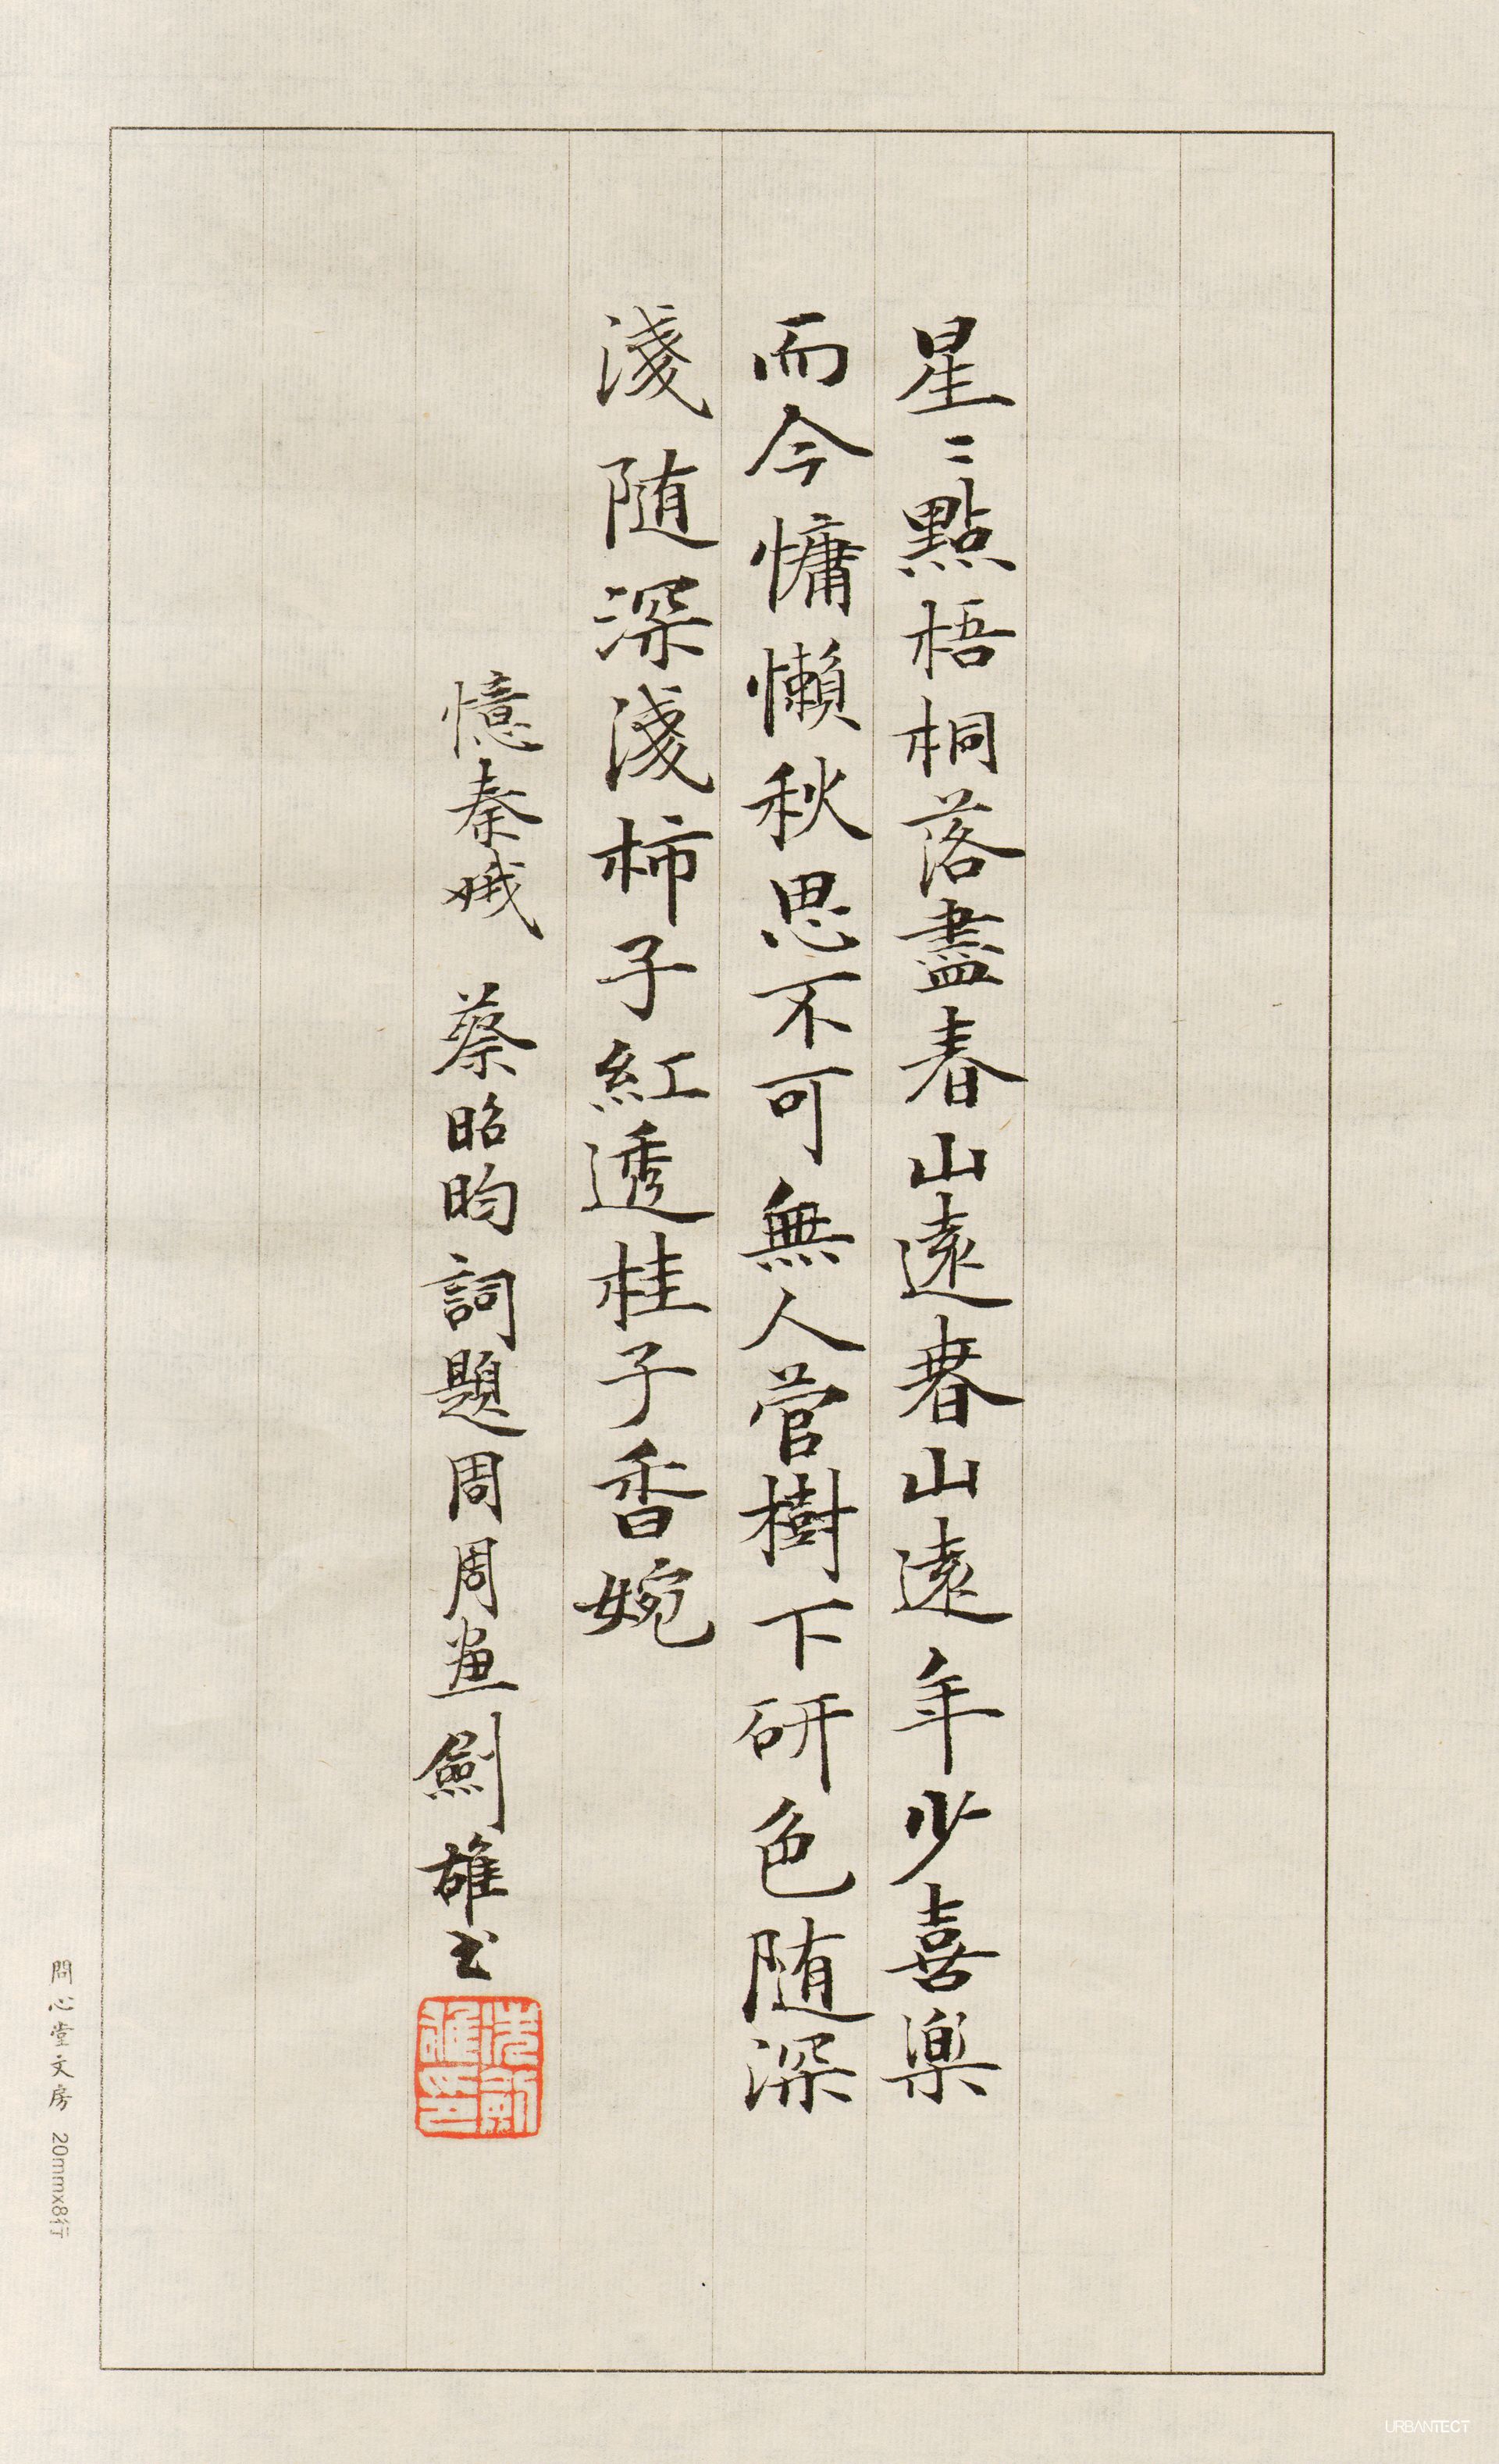 星〻點梧桐落盡春山遠春山遠年少喜樂
而今慵懶秋思不可無人管樹下研色随深
淺随深淺柿子紅透桂子香婉
憶秦娥 蔡昭昀詞題周周画劍雄书
問心堂文房 20mmx8行
URBANTECT